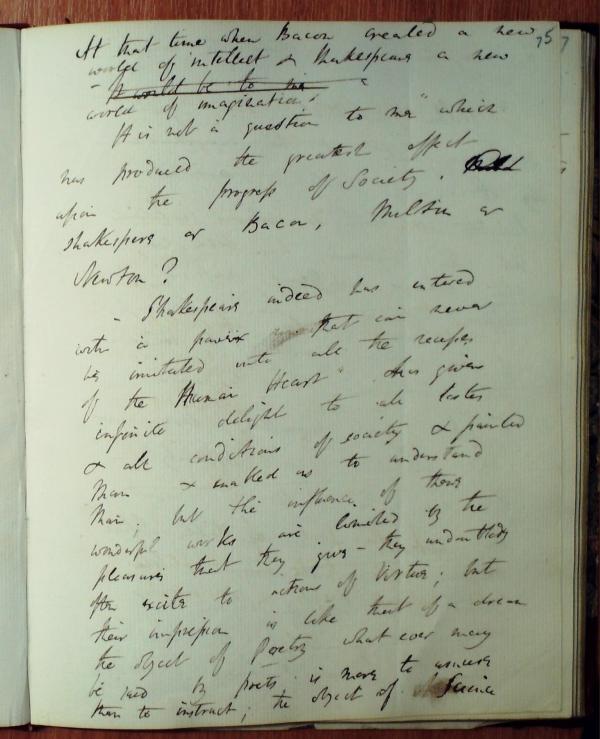 At that time when Bacon created a new
75 7
world of intellect & Shakespeare a new
"It would be to me
world of imagination. "
It is not a question to me" which
has produced the greatest effect
upon the progress of Society.
Shakespere or Bacon, Milton or
Newton?
"Shakespeare indeed has entered
with a power that can never
be imitated into all the recesses
of the Human Heart" has given
infinite delight to all tastes
& all conditions of society & painted
Man & enabled us to understand
Man; but the influence of these
wonderful works are limited by the
pleasures that they give – they undoubtedly
often excite to actions of Virtue; but
their impression is like that of a dream
the object of Poetry what ever may
be said by poets is more to amuse
than to instruct; the object of Science